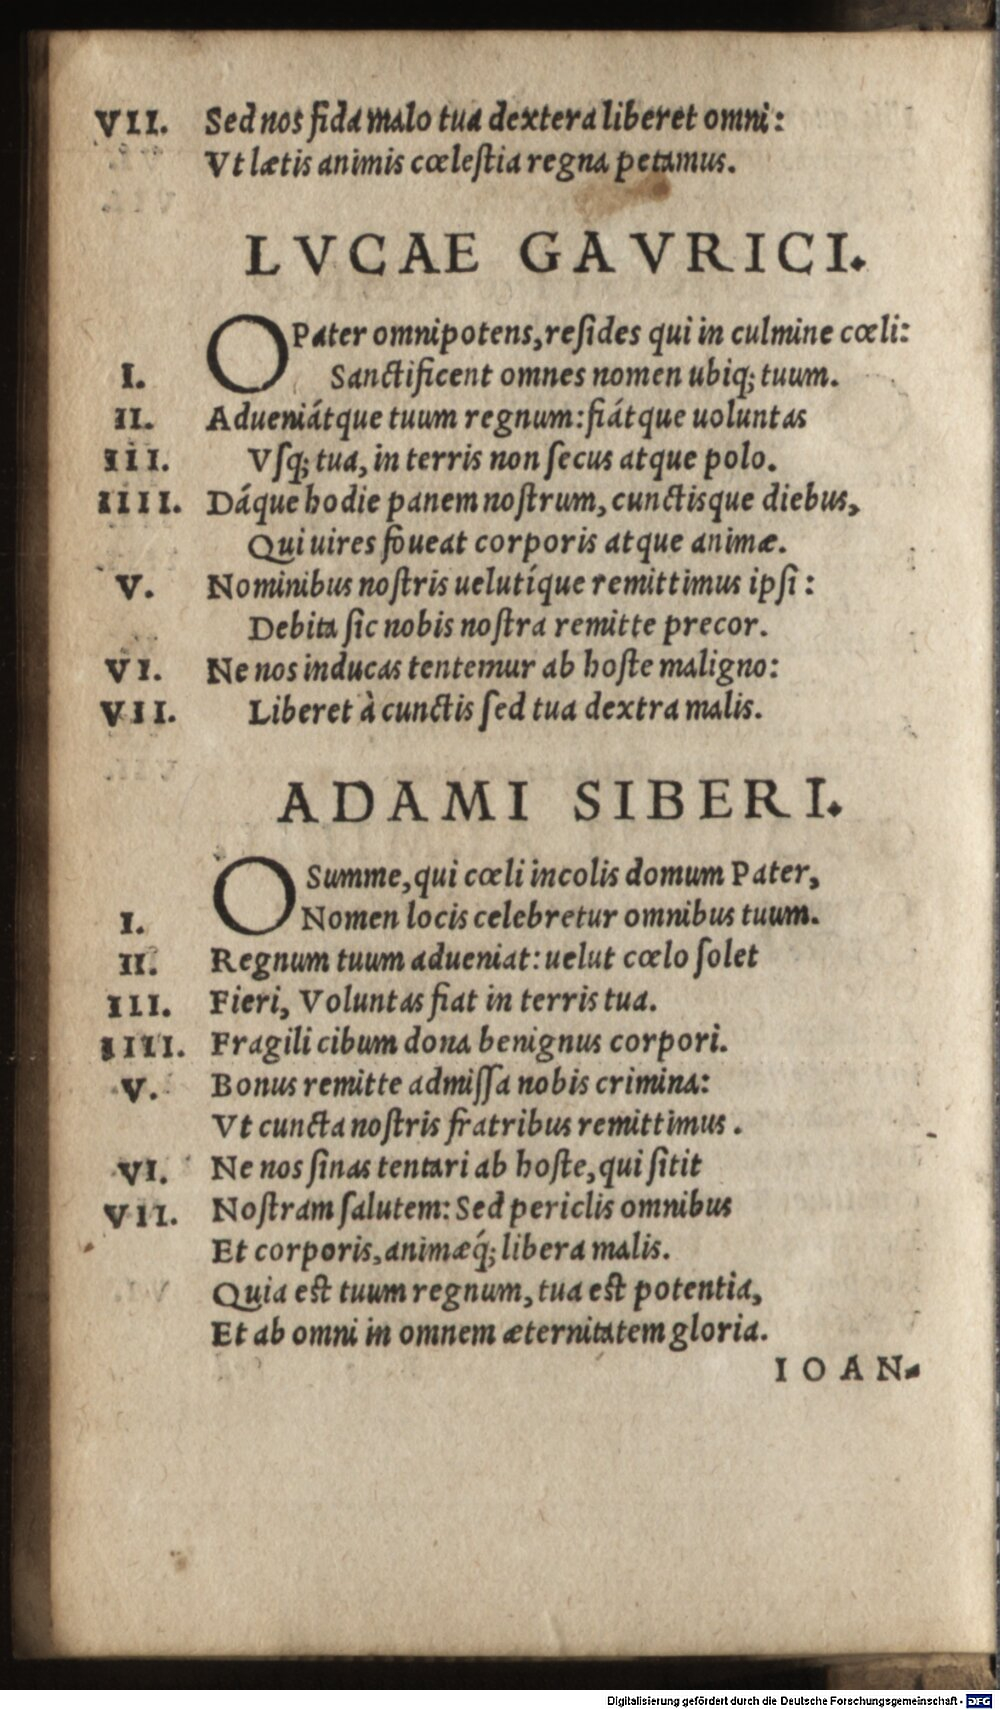 VII. Sed nos fida malo tua dextera liberet omni:
Vt lætis animis cœleſtia regna petamus.
LVCAE GAVRICI.
O Pater omnipotens, reſides qui in culmine cœli:
I. Sanctificent omnes nomen ubiq; tuum.
II. Adueniátque tuum regnum: fiátque uoluntas
III. Vſq; tua, in terris non ſecus atque polo.
IIII. Dáque hodie panem noſtrum, cunctisque diebus,
Qui uires foueat corporis atque animæ.
V. Nominibus noſtris uelutíque remittimus ipſi:
Debita ſic nobis noſtra remitte precor.
VI. Ne nos inducas tentemur ab hoſte maligno:
VII. Liberet à cunctis ſed tua dextra malis.
ADAMI SIBERI.
O Summe, qui cœli incolis domum Pater,
I. Nomen locis celebretur omnibus tuum.
II. Regnum tuum adueniat: uelut cœlo ſolet
III. Fieri, Voluntas fiat in terris tua.
IIII. Fragili cibum dona benignus corpori.
V. Bonus remitte admiſſa nobis crimina:
Vt cuncta noſtris fratribus remittimus.
VI. Ne nos ſinas tentari ab hoſte, qui ſitit
VII. Noſtram ſalutem: Sed periclis omnibus
Et corporis, animæq́; libera malis.
Quia eſt tuum regnum, tua eſt potentia,
Et ab omni in omnem æternitatem gloria.
IOAN-
Digitalisierung gefördert durch die Deutsche Forschungsgemeinschaft - DFG